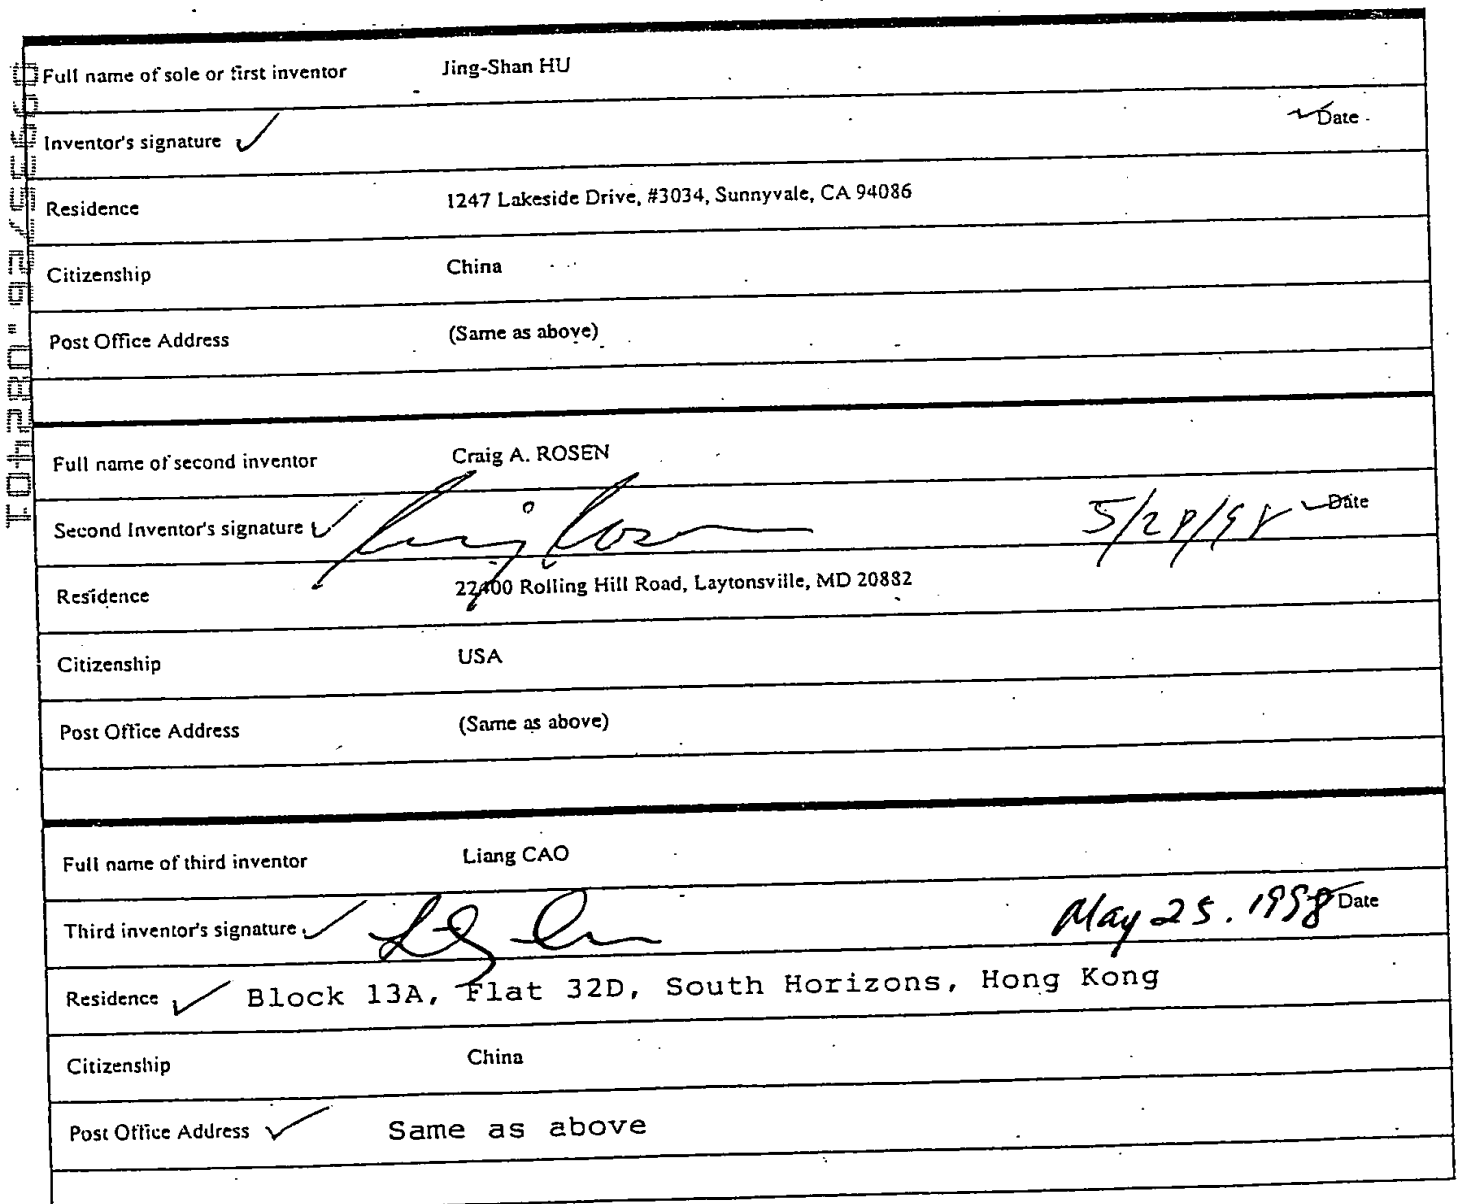 Full name of sole or first inventor Jing-Shan HU
Inventor's signature Date
Residence 1247 Lakeside Drive, #3034, Sunnyvale, CA 94086
Citizenship China
Post Office Address (Same as above)
Full name of second inventor Craig A. ROSEN
Second Inventor's signature Craig Rosen 5/28/98 Date
Residence 22400 Rolling Hill Road, Laytonsville, MD 20882
Citizenship USA
Post Office Address (Same as above)
Full name of third inventor Liang CAO
Third inventor's signature May 25. 1998 Date
Residence Block 13A, Flat 32D, South Horizons, Hong Kong
Citizenship China
Post Office Address Same as above